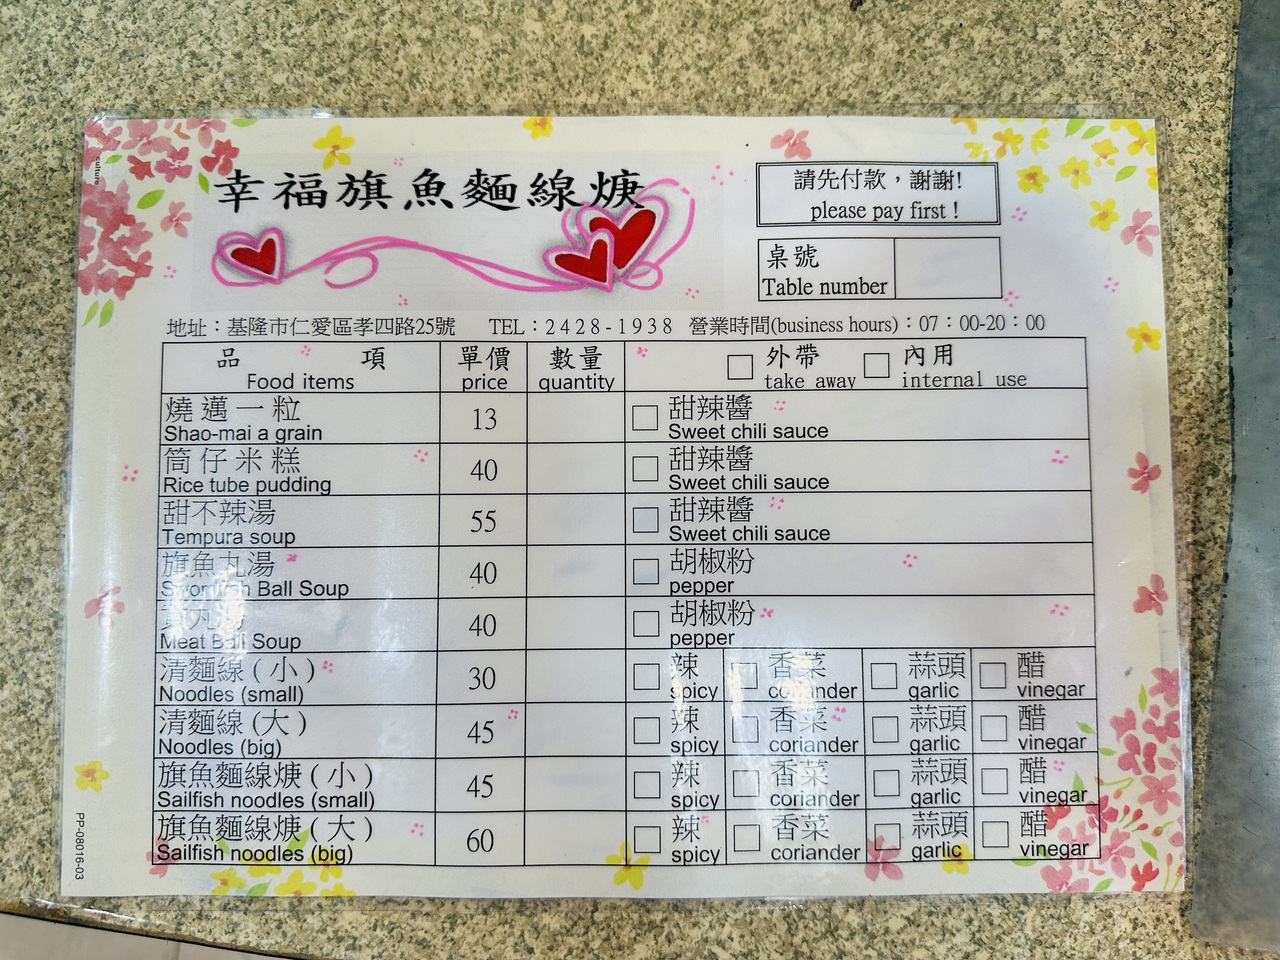 幸福旗魚麵線焿
請先付款，謝謝!
please pay first !
桌號
Table number
地址：基隆市仁愛區孝四路25號 TEL：2428-1938 營業時間(business hours)：07：00-20：00
品項 單價 數量 外帶 內用
Food items price quantity take away internal use
燒邁一粒 13 甜辣醬
Shao-mai a grain Sweet chili sauce
筒仔米糕 40 甜辣醬
Rice tube pudding Sweet chili sauce
甜不辣湯 55 甜辣醬
Tempura soup Sweet chili sauce
旗魚丸湯 40 胡椒粉
Swordfish Ball Soup pepper
40 胡椒粉
Meat Ball Soup pepper
清麵線(小) 30 辣 香菜 蒜頭 醋
Noodles (small) spicy coriander garlic vinegar
清麵線(大) 45 辣 香菜 蒜頭 醋
Noodles (big) spicy coriander garlic vinegar
旗魚麵線焿(小) 45 辣 香菜 蒜頭 醋
Sailfish noodles (small) spicy coriander garlic vinegar
旗魚麵線焿(大) 60 辣 香菜 蒜頭 醋
Sailfish noodles (big) spicy coriander garlic vinegar
PP-08016-03